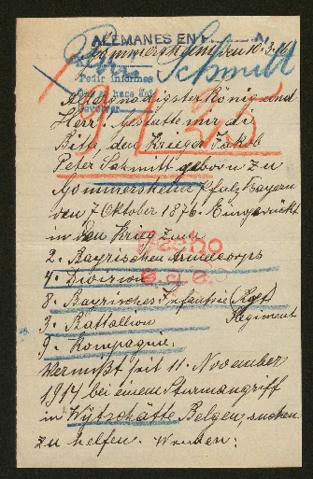 ALEMANES EN
Gommersheim den 10.3.16
Peter Schmitt
Pedir informes
1135
Allergnädigster König und
Herr! gestatte mir die
Bitte den Krieger Jakob
Peter Schmitt geboren zu
Gommersheim Pfalz Bayern
den 7 Oktober 1876. Eingerückt
in den Krieg zum
Hecho
2. Bayrischen Armeecorps
4. Division
8. Bayrisches Infantrie (Rgt)
Regiment
3. Battallion
9. Kompagnie.
Vermißt seit 11. November
1914 bei einem Sturmangriff
in Wytschätte Belgien, suchen
zu helfen. Werden: